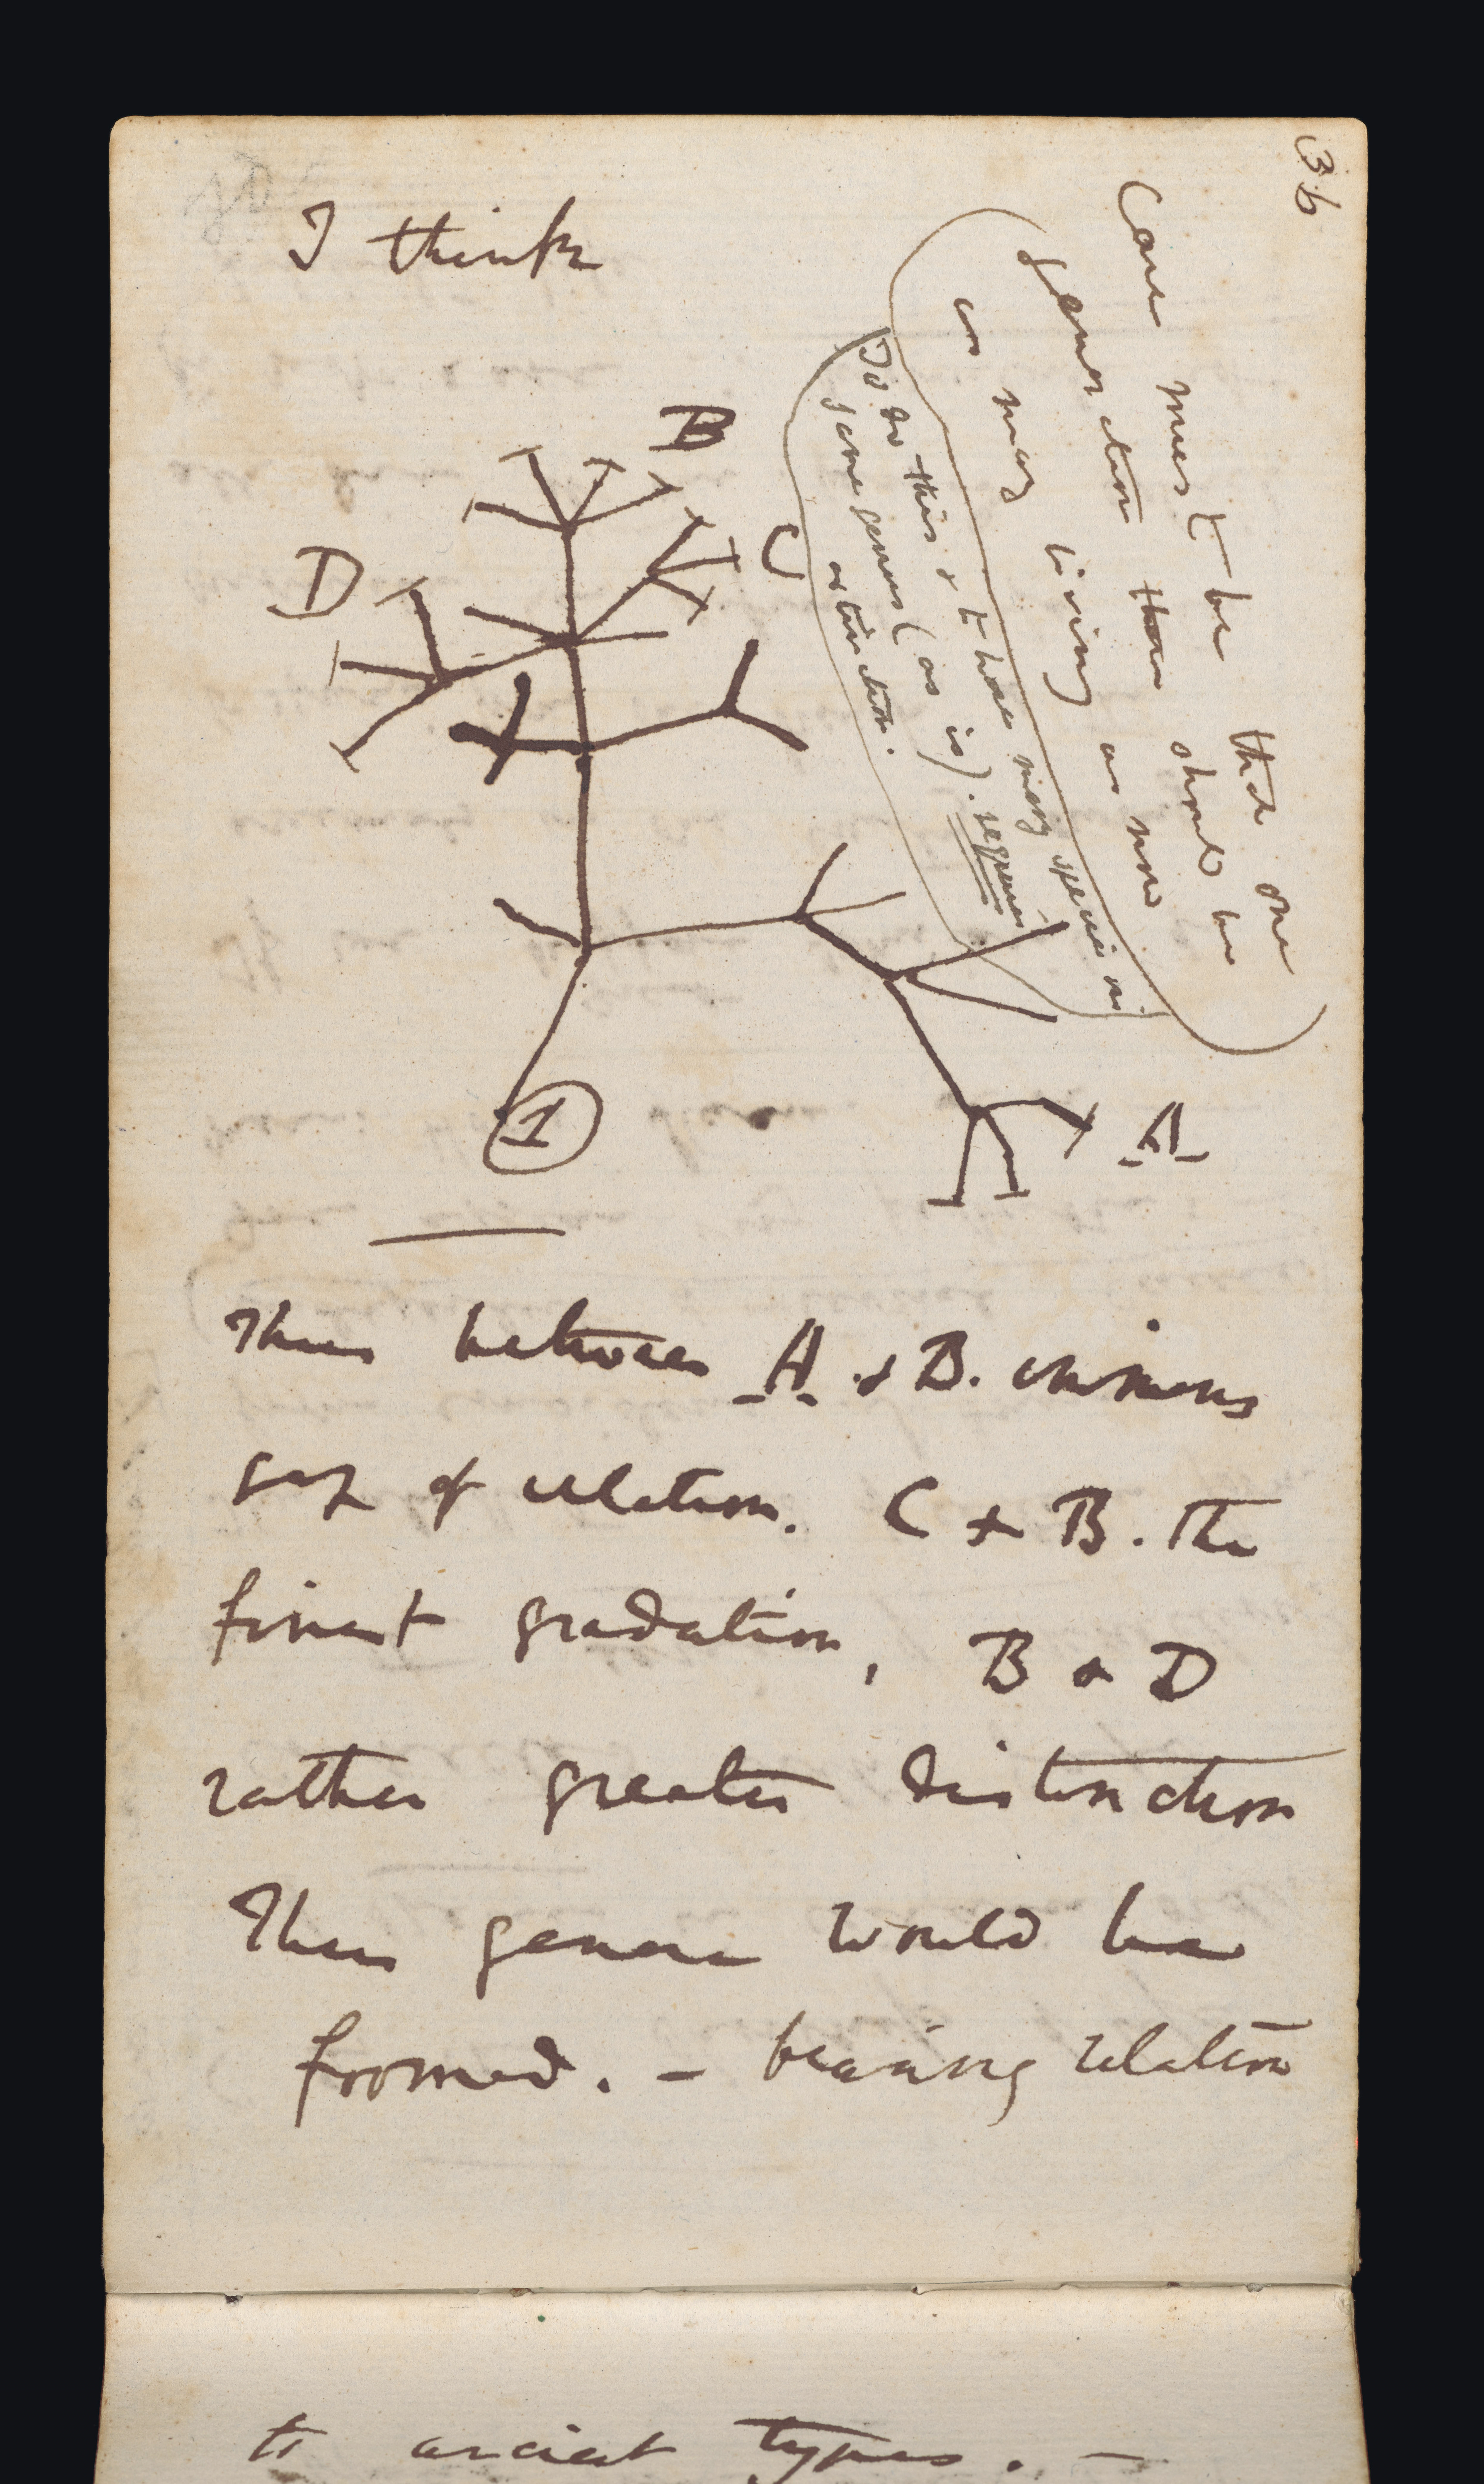 36
I think
Case must be that one
generation then should be
as many living as now
To do this & to have many species in
same genus (as is). requires
extinction.
B
C
D
A
1
Thus between A & B. immens
gap of relation. C & B. The
finest gradation, B & D
rather greater distinction
Thus genera would be
formed. — bearing relation
to ancient types. —